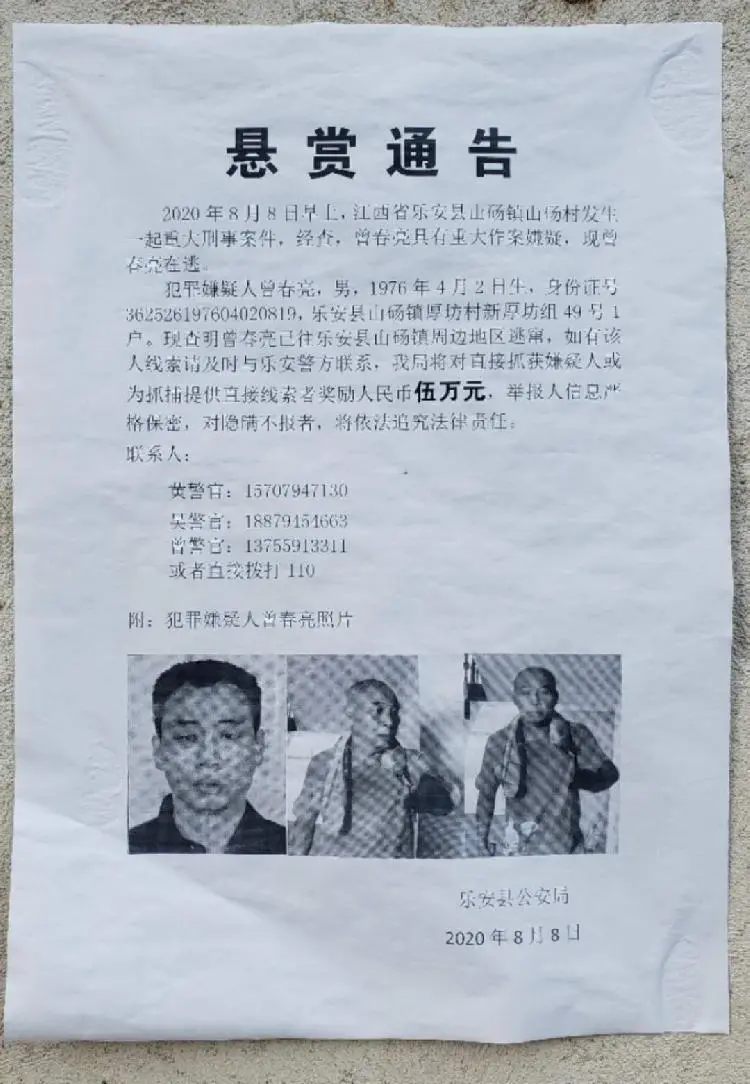 悬赏通告
2020年8月8日早上，江西省乐安县山砀镇山砀村发生
一起重大刑事案件，经查，曾春亮具有重大作案嫌疑，现曾
春亮在逃。
犯罪嫌疑人曾春亮，男，1976年4月2日生，身份证号
362526197604020819，乐安县山砀镇厚坊村新厚坊组49号1
户。现查明曾春亮已往乐安县山砀镇周边地区逃窜，如有该
人线索请及时与乐安警方联系，我局将对直接抓获嫌疑人或
为抓捕提供直接线索者奖励人民币伍万元，举报人信息严
格保密，对隐瞒不报者，将依法追究法律责任。
联系人：
黄警官：15707947130
吴警官：18879454663
曾警官：13755913311
或者直接拨打110
附：犯罪嫌疑人曾春亮照片
乐安县公安局
2020年8月8日